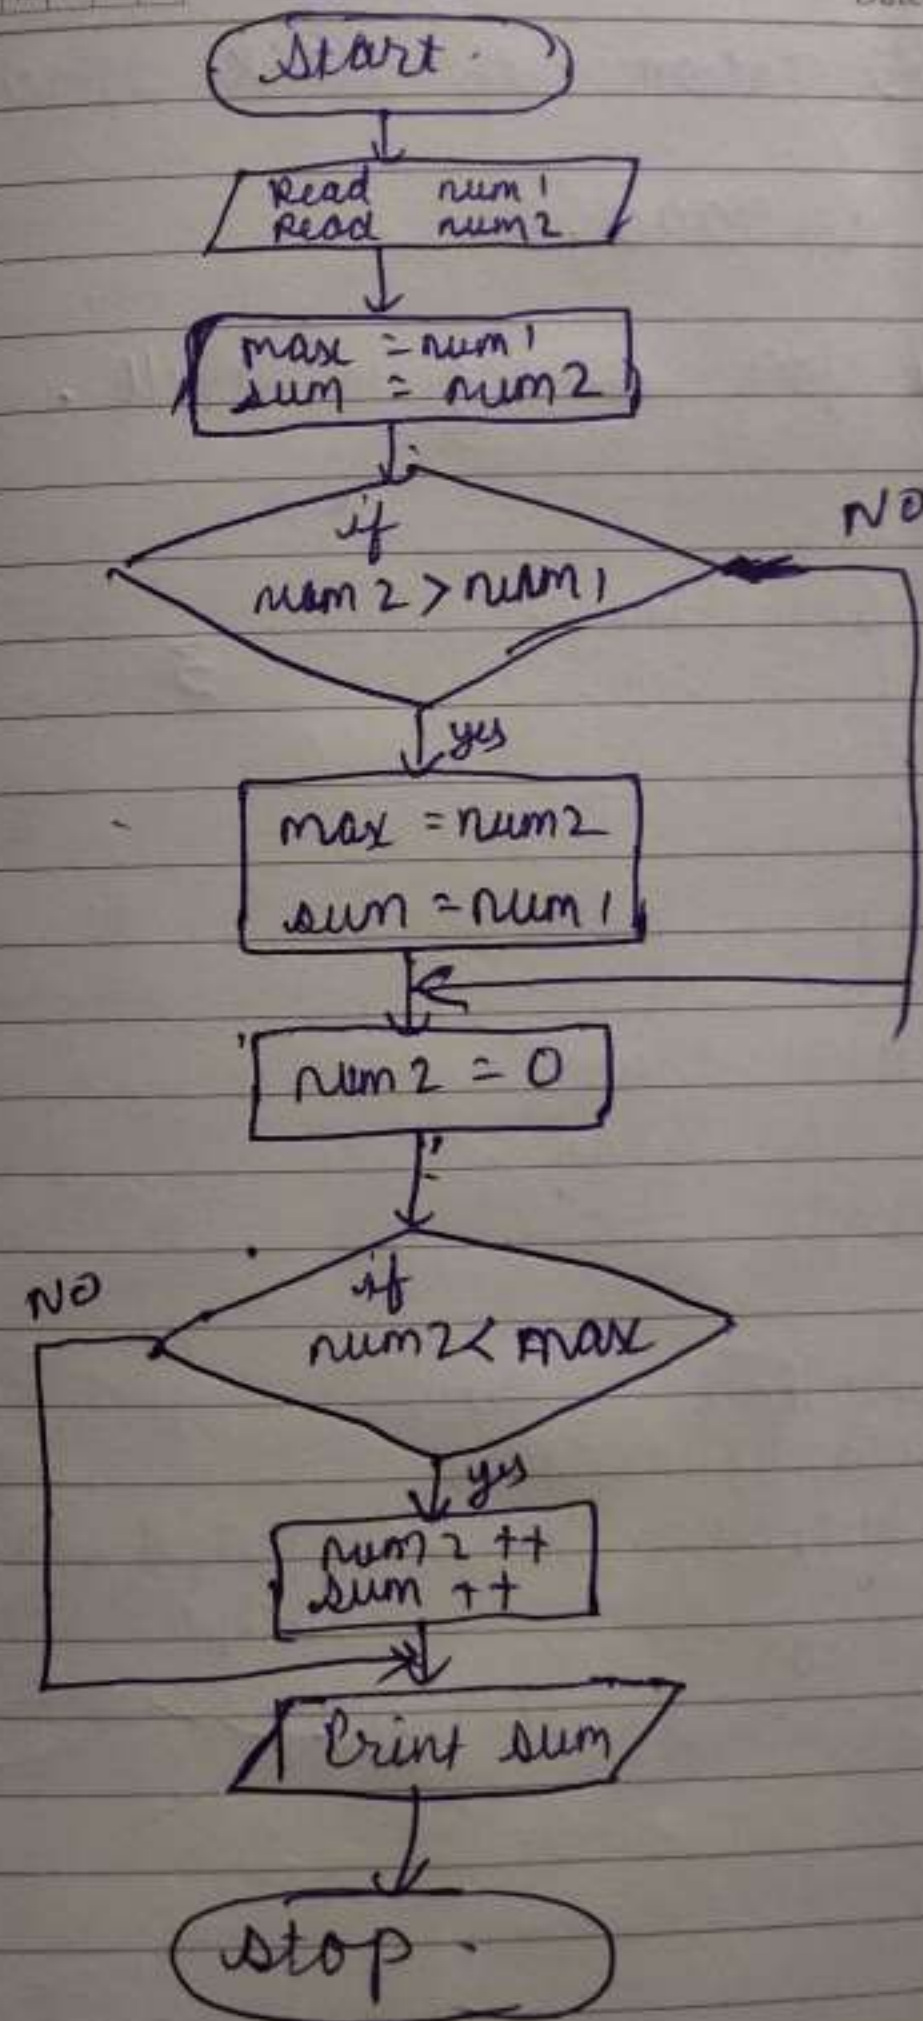 Start.
Read num1
Read num2
max = num1
sum = num2
if
num2 > num1
NO
yes
max = num2
sum = num1
num2 = 0
if
num2 < max
NO
yes
num2 ++
sum ++
Print sum
Stop.